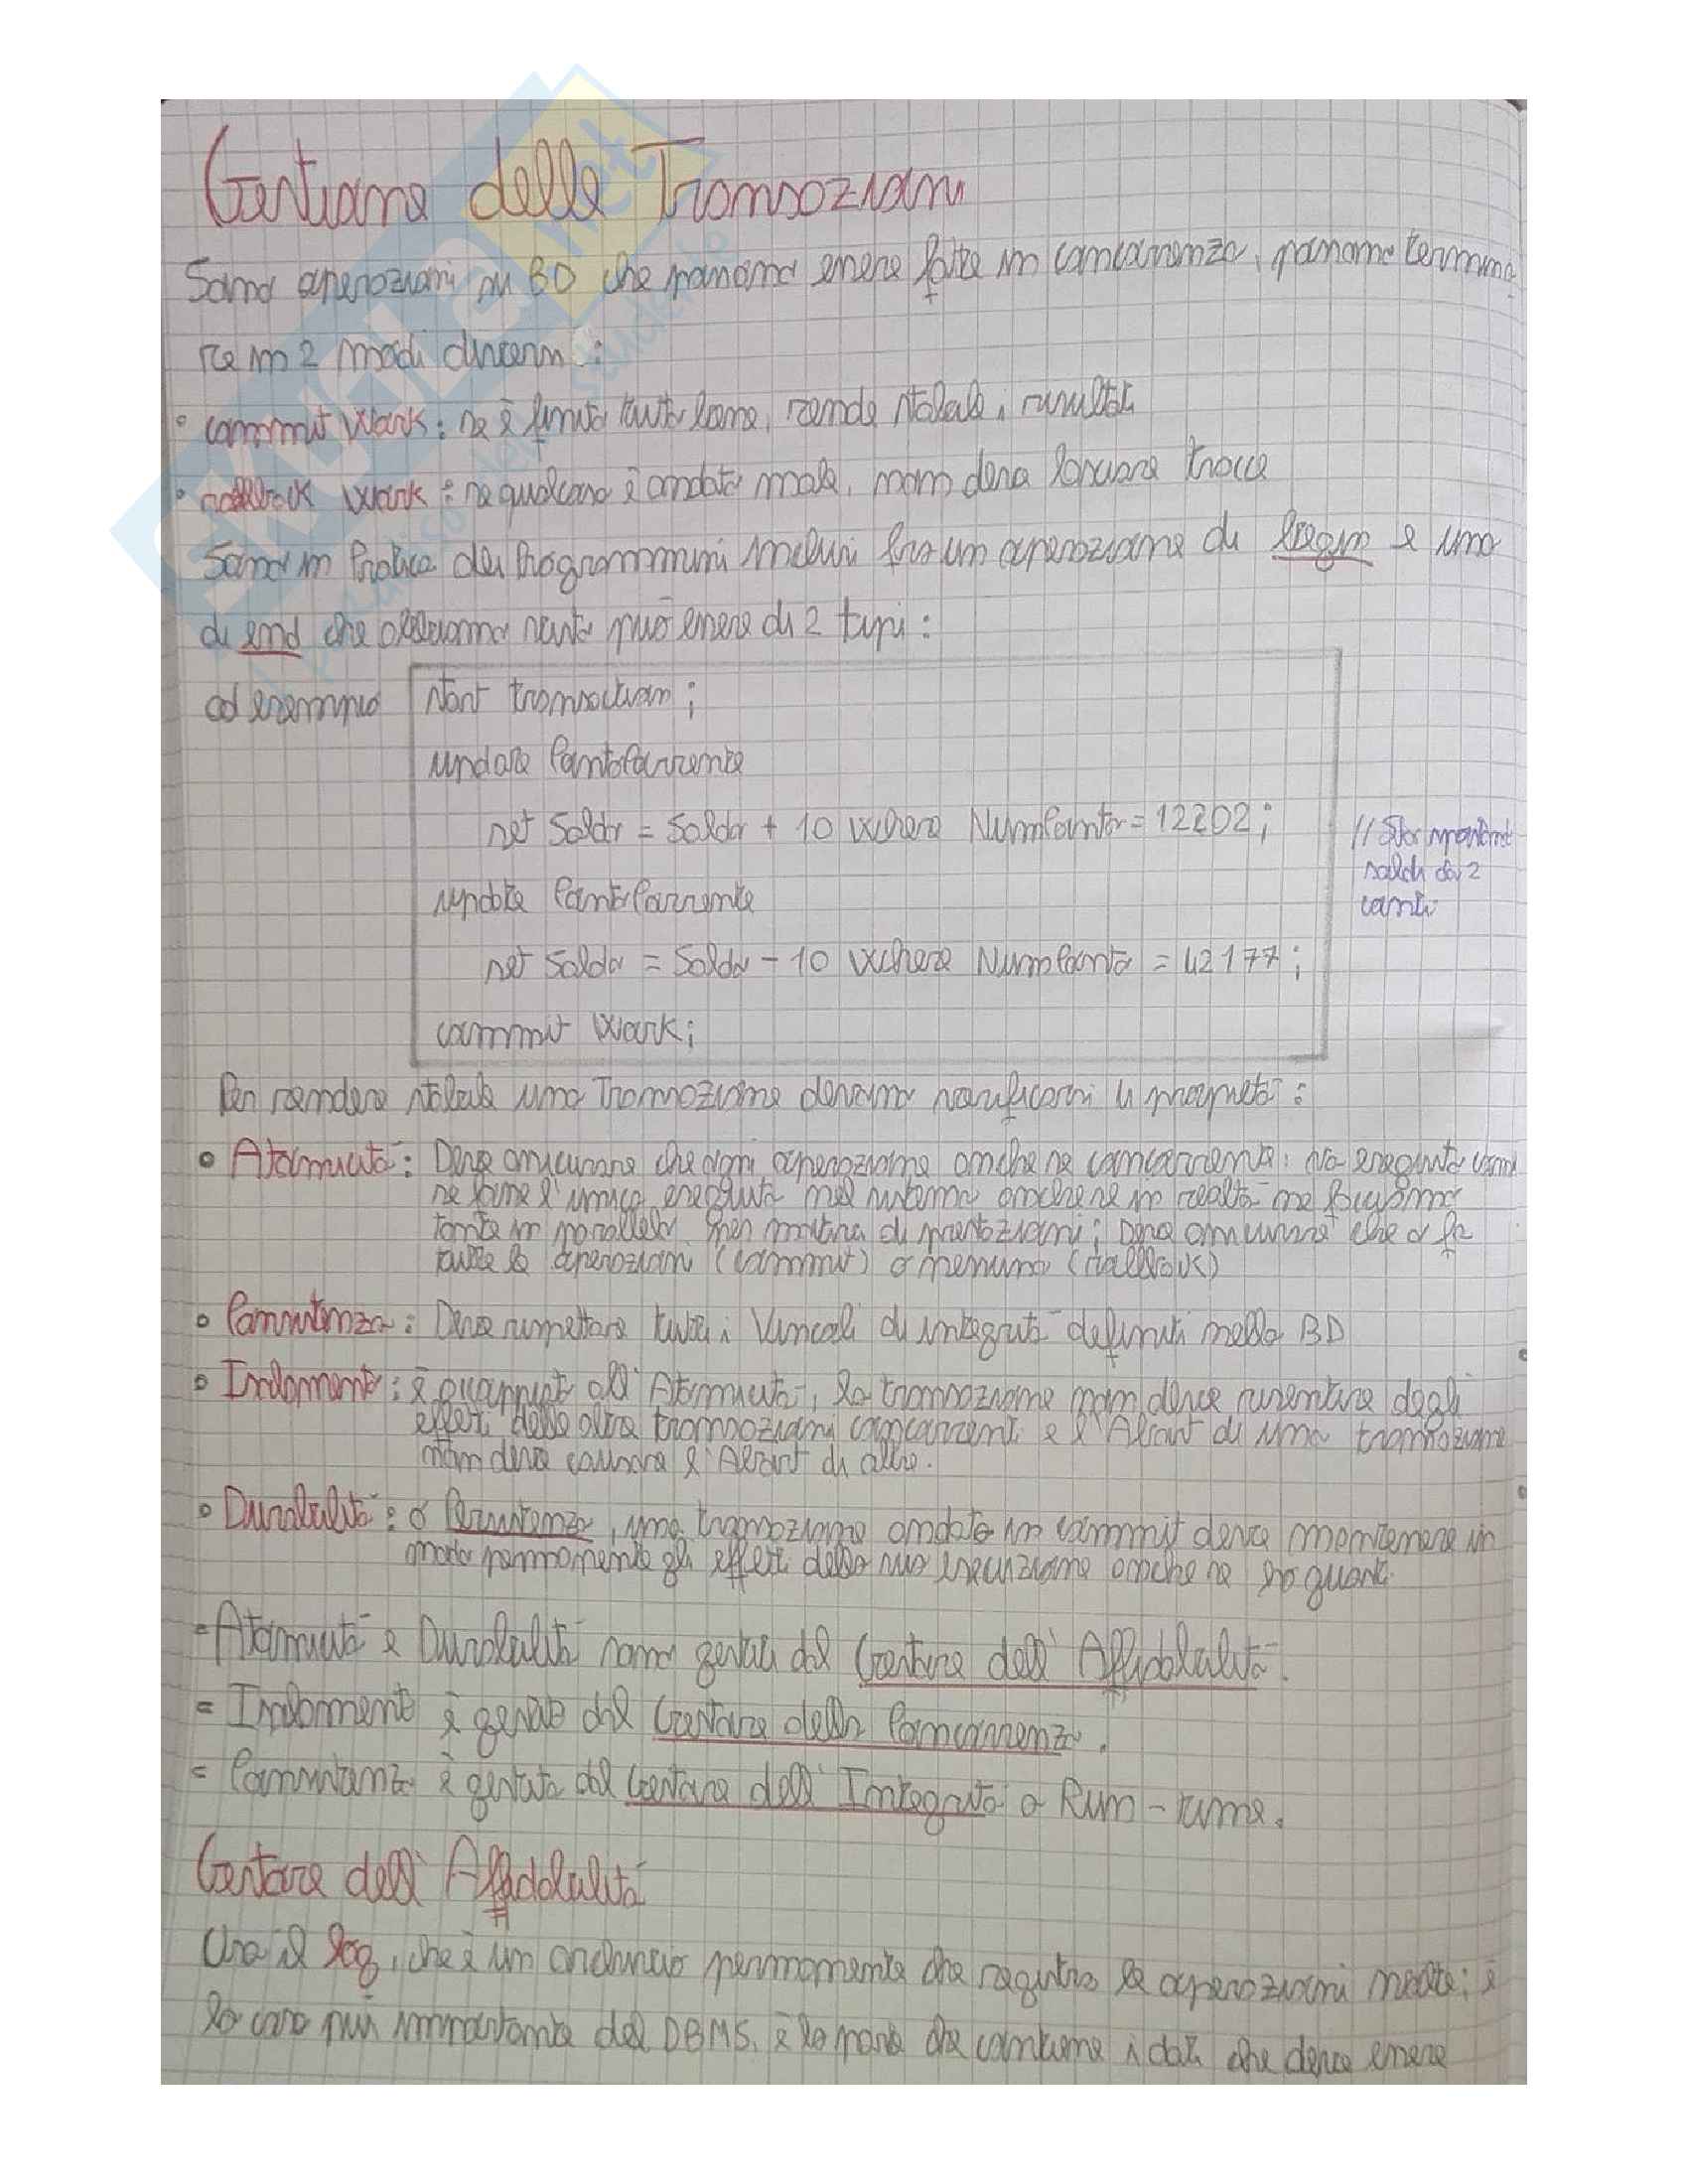 Gestione delle Transazioni
Sono operazioni su BD che possono essere fatte in concorrenza, possono termina
re in 2 modi diversi :
• commit work : se è finito tutto bene, rende stabili i risultati
• rollback work : se qualcosa è andato male, non deve lasciare tracce
Sono in Pratica dei Programmini inclusi fra un operazione di begin e una
di end che abbiamo visto può essere di 2 tipi :
ad esempio
start transaction ;
update ContoCorrente
set Saldo = Saldo + 10 where NumConto = 12202 ;
// Sto spostando
saldi da 2
conti
update ContoCorrente
set Saldo = Saldo - 10 where NumConto = 42177 ;
commit work ;
Per rendere stabile una Transazione devono verificarsi 4 proprietà :
• Atomicità : Deve assicurare che ogni operazione anche se concorrente sia eseguita come
se fosse l'unica eseguita nel sistema anche se in realtà ne facciamo
tante in parallelo per motivi di prestazioni ; deve assicurare che o fa
tutte le operazioni (commit) o nessuna (rollback)
• Consistenza : Deve rispettare tutti i Vincoli di integrità definiti nella BD
• Isolamento : è all'Atomicità, la transazione non deve risentire degli
effetti delle altre transazioni concorrenti e l'Abort di una transazione
non deve causare l'Abort di altre.
• Durabilità : o Persistenza, una transazione andata in commit deve mantenere in
modo permanente gli effetti della sua esecuzione anche se ho guasti.
= Atomicità e Durabilità sono gestiti dal Gestore dell' Affidabilità.
= Isolamento è gestito dal Gestore della Concorrenza.
= Consistenza è gestita dal Gestore dell' Integrità a Run-time.
Gestore dell' Affidabilità
Usa il log, che è un archivio permanente che registra le operazioni svolte ; è
la cosa più importante del DBMS, è la parte che contiene i dati che deve essere